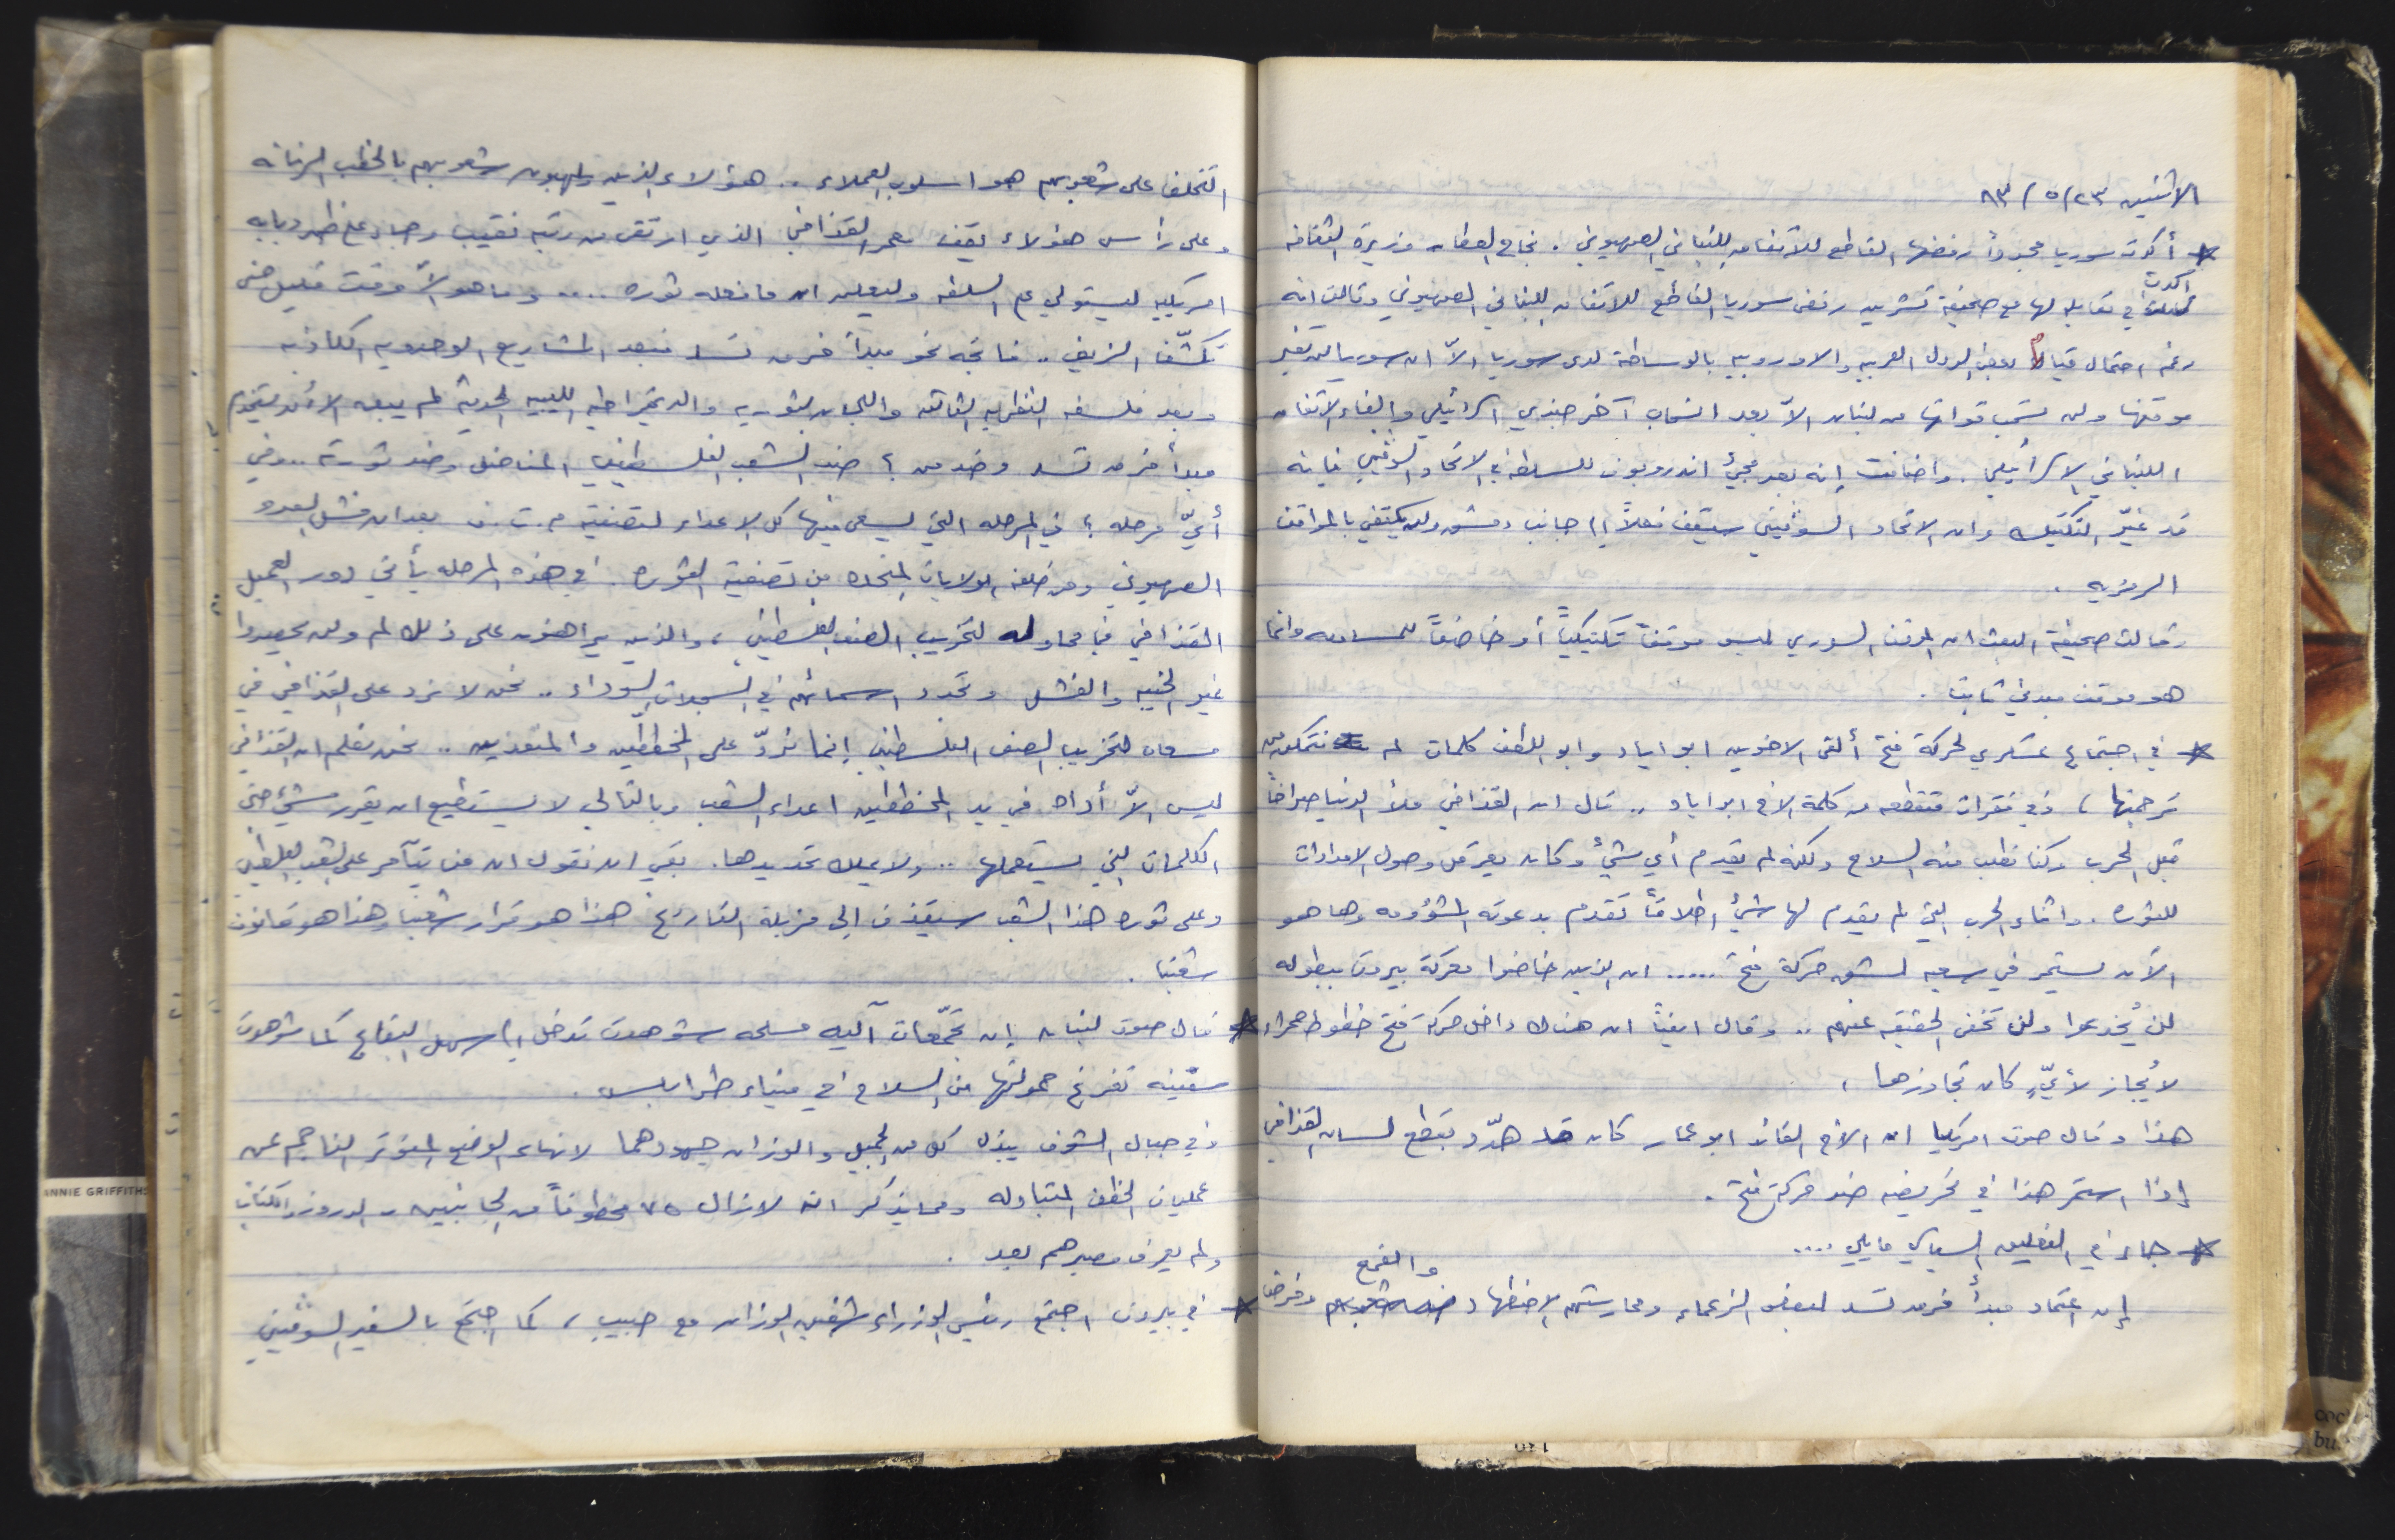 الاثنين ٢٣/٥/٨٣
* أكدت سوريا مجدداً رفضها القاطع للاتفاق اللبناني الصهيوني. نجاح العطار وزيرة الثقافة
اكدت
في مقابلة لها مع صحيفة تشرين رفض سوريا القاطع للاتفاق اللبناني الصهيوني وقالت انه
رغم احتمال قيام بعض الدول العربيه والاوروبيه بالوساطة لدى سوريا الاّ ان سوريا لن تغير
موقفها ولن تسحب قواتها من لبنان الاّ بعد انسحاب آخر جندي اسرائيلي والغاء الاتفاق
اللبناني الاسرائيلي. واضافت إنه بعد مجيئ اندروبوف للسلطه في الاتحاد السوڤيتي فإنه
قد غيّر التكتيك وان الاتحاد السوڤيتي سيقف فعلاً إلى جانب دمشق ولن يكتفي بالمواقف
الرمزيه.
وقالت صحيفة البعث ان الموقف السوري ليس موقفاً تكتيكياً أو خاضعاً للمساومه وانما
هو موقف مبدئي ثابت.
* في اجتماع عسكري لحركة فتح ألقى الاخوين ابو اياد وابو اللطف كلمات لم نتمكن من
ترجمتها، وفي فقرات مقتطعه من كلمة الاخ ابو اياد .. قال ان القذافي ملأ الدنيا صراخاً
قبل الحرب وكنا نطلب منه السلاح ولكنه لم يقدم أي شيئ وكان يعرقل وصول الامدادات
للثوره. واثناء الحرب التي لم يقدم لها شيئ اطلاقاً تقدم بدعوته المشؤومه وها هو
الآن يستمر في سعيه لشق حركة فتح ..... ان الذين خاضوا معركة بيروت ببطوله
لن يُخدعوا ولن تخفى الحقيقه عنهم .. وقال ايضاً ان هناك داخل حركة فتح خطوط حمراء
لا يُجاز لأيٍّ كان تجاوزها،
هذا وقال صوت امريكيا ان الاخ القائد ابو عمار كان قد هدّد بقطع لسان القذافي
إذا استمر هذا في تحريضه ضد حركة فتح.
* جاء في التعليق السياسي مايلي ....
والقمع
إن اعتماد مبدأ فرق تسد لبعض الزعماء وممارستهم الاضطهاد ضد شعوبهم وفرض
التخلف على شعوبهم هو اسلوب العملاء .. هؤلاء الذين يلهبون شعوبهم بالخطب الرنانه
وعلى رأس هؤلاء يقف معمر القذافي الذي ارتقى من رتبة نقيب وجاء على ظهر دبابه
امريكيه ليستولي على السلطه وليعلن ان ما فعله ثوره .... وما هو الاّ وقت قليل حتى
تكشّف الزيف .. فاتجه نحو مبدأ فرق تسد فبعد المشاريع الوحدويه الكاذبه
وبعد فلسفه النظريه الثالثه واللجان الثوريه والديمقراطيه الليبيه الحديثه لم يبقه الا أن يستخدم
مبدأ فرق تسد وضد من؟ ضد الشعب الفلسطيني المناضل وضد ثورته .. وفي
أيّ مرحله؟ في المرحله التي يسعى فيها كل الاعداء لتصفية م.ت.ف بعد ان فشل العدو
الصهيوني ومن خلفه الولايات المتحده من تصفية الثوره. في هذه المرحله يأتي دور العميل
القذافي في محاوله لتخريب الصف الفلسطيني، والذين يراهنون على ذلك لم ولن يحصدوا
غير الخيبه والفشل وتحدد اسمائهم في السجلات السوداء .. نحن لا نرد على القذافي في
مسعاه لتخريب الصف الفلسطيني إنما نردّ على المخططين والمنفذين .. نحن نعلم ان القذافي
ليس الاّ أداه في يد المخططين اعداء الشعب وبالتالي لا يستطيع ان يقرر شيئ حتى
الكلمات التي يستعملها ... ولا يملك تحديدها. بقي ان نقول ان من يتآمر على الشعب الفلسطيني
وعلى ثورة هذا الشعب سيقذف إلى مزبلة التاريخ هذا هو قرار شعبنا وهذا هو قانون
شعبنا.
* قال صوت لبنان إن تجمّعات آليه مسلحه شوهدت تدخل إلى سهل البقاع كما شوهدت
سفينه تفرغ حمولتها من السلاح في ميناء طرابلس.
وفي جبال الشوف يبذل كل من الجميل والوزان جهودهما لانهاء الوضع المتوتر الناجم عن
عمليات الخطف المتبادله ومما يذكر انه لازال ٧٥ مخطوفاً من الجانبين - الدروز والكتائب
ولم يعرف مصيرهم بعد.
* في بيروت اجتمع رئيس الوزراء شفيق الوزان مع حبيب، كما اجتمع بالسفير السوڤيتي
ANNIE GRIFFITHS